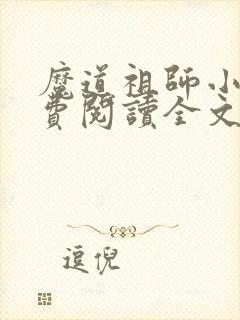 魔道祖师小
費閱讀全文
逗倪